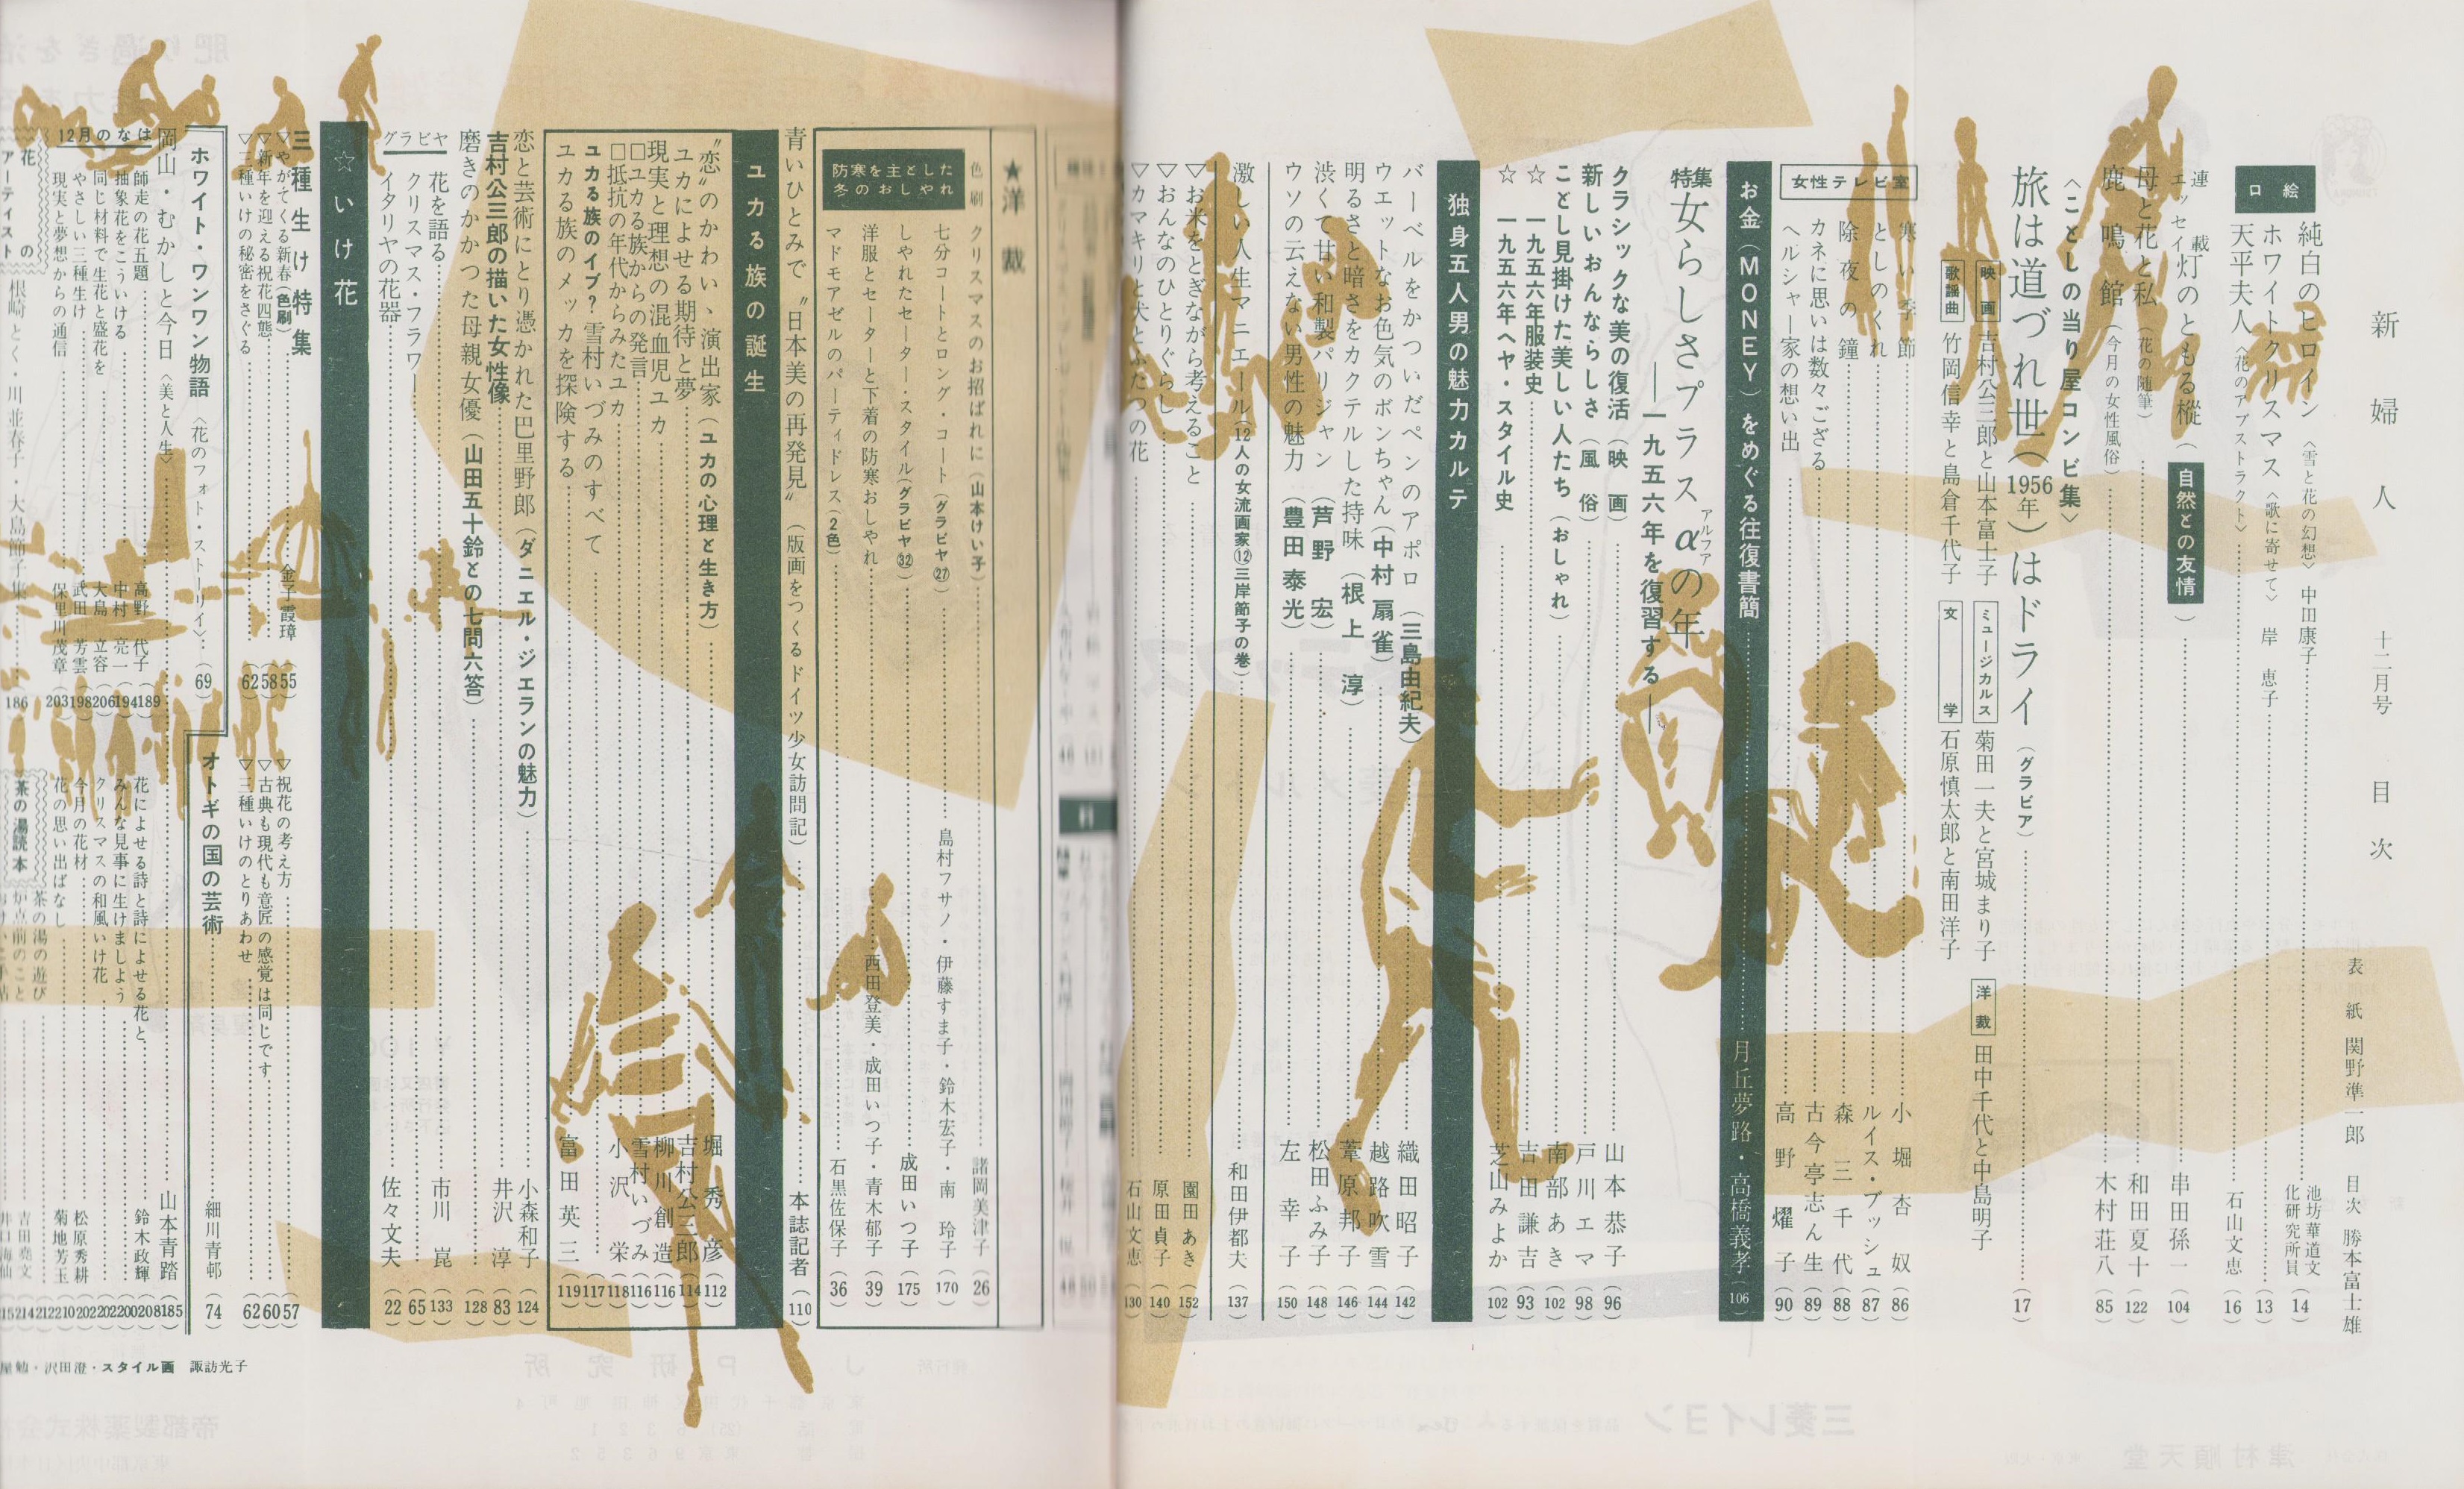 新婦人 十二月号 目次
表紙 関野準一郎 目次 勝本富士雄
口絵
純白のヒロイン〈雪と花の幻想〉 中田康子 池坊華道文化研究所員（14）
ホワイトクリスマス〈歌に寄せて〉 岸恵子（13）
天平夫人〈花のアブストラクト〉 石山文恵（16）
連載エッセイ 灯のともる樅（自然との友情） 串田孫一（104）
母と花と私（花の随筆） 和田夏十（122）
鹿鳴館（今月の女性風俗） 木村荘八（85）
〈ことしの当り屋コンビ集〉
旅は道づれ世（1956年）はドライ（グラビア）（17）
映画 吉村公三郎と山本富士子 ミュージカルス 菊田一夫と宮城まり子 洋裁 田中千代と中島明子
歌謡曲 竹岡信幸と島倉千代子 文学 石原慎太郎と南田洋子
女性テレビ室
寒い季節 小堀杏奴（86）
としのくれ ルイス・ブッシュ（87）
除夜の鐘 森三千代（88）
カネに思いは数々ござる 古今亭志ん生（89）
ヘルシャー家の想い出 高野燿子（90）
お金（MONEY）をめぐる往復書簡 月丘夢路・高橋義孝（106）
特集 女らしさプラスα（アルファ）の年
――一九五六年を復習する――
クラシックな美の復活（映画） 山本恭子（96）
新しいおんならしさ（風俗） 戸川エマ（98）
ことし見掛けた美しい人たち（おしゃれ） 南部あき（102）
☆ 一九五六年服装史 吉田謙吉（93）
☆ 一九五六年ヘヤ・スタイル史 芝山みよか（102）
独身五人男の魅力カルテ
バーベルをかついだペンのアポロ（三島由紀夫） 織田昭子（142）
ウエットなお色気のボンちゃん（中村扇雀） 越路吹雪（144）
明るさと暗さをカクテルした持味（根上淳） 葦原邦子（146）
渋くて甘い和製パリジャン（芦野宏） 松田ふみ子（148）
ウソの云えない男性の魅力（豊田泰光） 左幸子（150）
激しい人生マニエール（12人の女流画家⑫三岸節子の巻） 和田伊都夫（137）
▽お米をとぎながら考えること 園田あき（152）
▽おんなのひとりぐらし 原田貞子（140）
▽カマキリと夫とふたつの花 石山文恵（130）
★洋裁
色刷 クリスマスのお招ばれに（山本けい子） 諸岡美津子（26）
防寒を主とした冬のおしゃれ
七分コートとロング・コート（グラビヤ㉗） 島村フサノ・伊藤すま子・鈴木宏子・南玲子（170）
しゃれたセーター・スタイル（グラビヤ㉜） 成田いつ子（175）
洋服とセーターと下着の防寒おしゃれ 西田登美・成田いつ子・青木郁子（39）
マドモアゼルのパーティドレス（2色） 石黒佐保子（36）
青いひとみで〝日本美の再発見〟（版画をつくるドイツ少女訪問記） 本誌記者（110）
ユカる族の誕生
〝恋〟のかわいゝ演出家（ユカの心理と生き方） 堀秀彦（112）
ユカによせる期待と夢 吉村公三郎（114）
現実と理想の混血児ユカ 柳川創造（116）
□ユカる族からの発言 雪村いづみ（116）
□抵抗の年代からみたユカ 小沢栄（118）
ユカる族のイブ？雪村いづみのすべて（117）
ユカる族のメッカを探険する 富田英三（119）
恋と芸術にとり憑かれた巴里野郎（ダニエル・ジェランの魅力） 小森和子（124）
吉村公三郎の描いた女性像 井沢淳（83）
磨きのかかった母親女優（山田五十鈴との七問六答）（128）
グラビヤ
花を語る 市川崑（133）
クリスマス・フラワー（65）
イタリヤの花器 佐々文夫（22）
☆いけ花
三種生け特集
▽やがてくる新春（色刷） 金子霞璋（55）
▽新年を迎える祝花四態（58）
▽三種いけの秘密をさぐる（62）
▽祝花の考え方（57）
▽古典も現代も意匠の感覚は同じです（60）
▽三種いけのとりあわせ（62）
ホワイト・ワンワン物語〈花のフォト・ストーリイ〉（69）
オトギの国の芸術 細川青邨（74）
岡山・むかしと今日〈美と人生〉 山本青踏（185）
12月のなは
師走の花五題 高野代子（189）
抽象花をこういける 中村亮一（194）
同じ材料で生花と盛花を 大島立容（206）
やさしい三種生け 武田芳雲（198）
現実と夢想からの通信 保里川茂章（203）
花によせる詩と詩によせる花と 鈴木政輝（208）
みんな見事に生けましよう（200）
クリスマスの和風いけ花（202）
今月の花材 松原秀耕（202）
花の思い出ばなし 菊地芳玉（210）
花のアーティスト
根崎とく・川並春子・大島節子集（186）
茶の湯読本
茶の湯の遊び 吉田堯文（212）
炉点前のこと
屋勉・沢田澄・スタイル画 諏訪光子